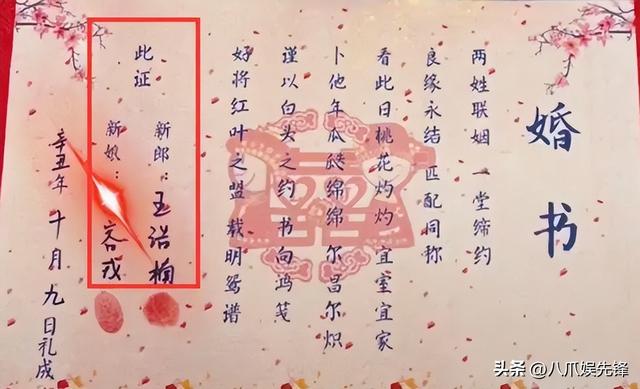 婚书
两姓联姻 一堂缔约
良缘永结 匹配同称
看此日桃花灼灼 宜室宜家
卜他年瓜瓞绵绵 尔昌尔炽
谨以白头之约 书向鸿笺
好将红叶之盟 载明鸳谱
此证
新郎：王诣楠
新娘：
辛丑年 十月 九日礼成
头条 @八爪娱先锋